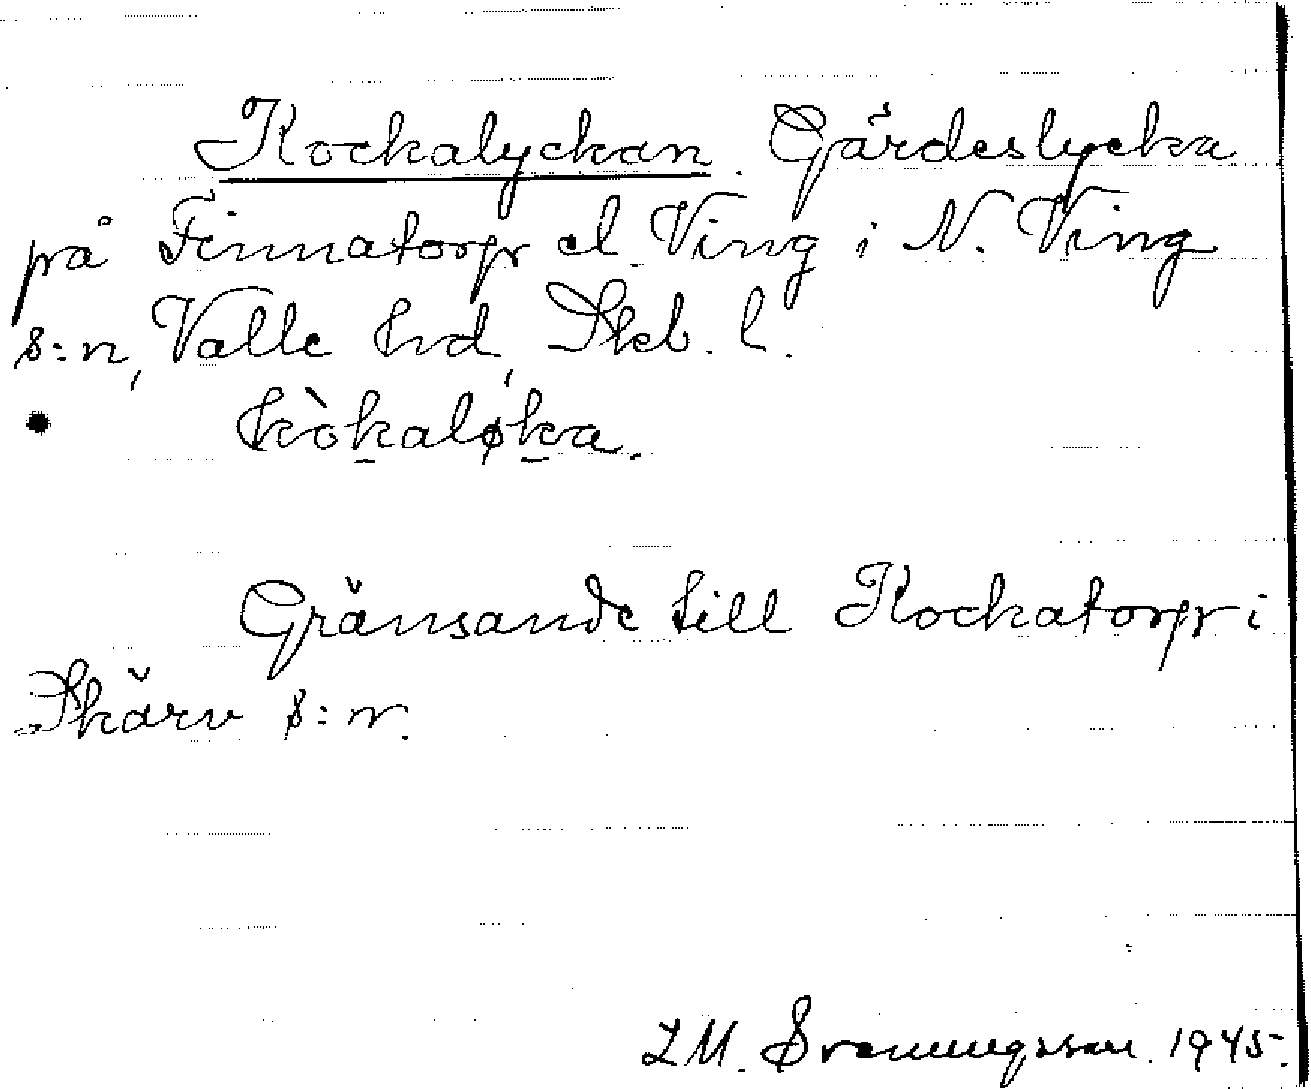 Kockalyckan. Gärdeslycka
på Finnatorp el. Ving i N. Ving
s:n, Valle hd, Skb. l.
kòkaløka.
Gränsande till Kockatorp i
Skärv s:n.
L M. Svenungsson. 1945.